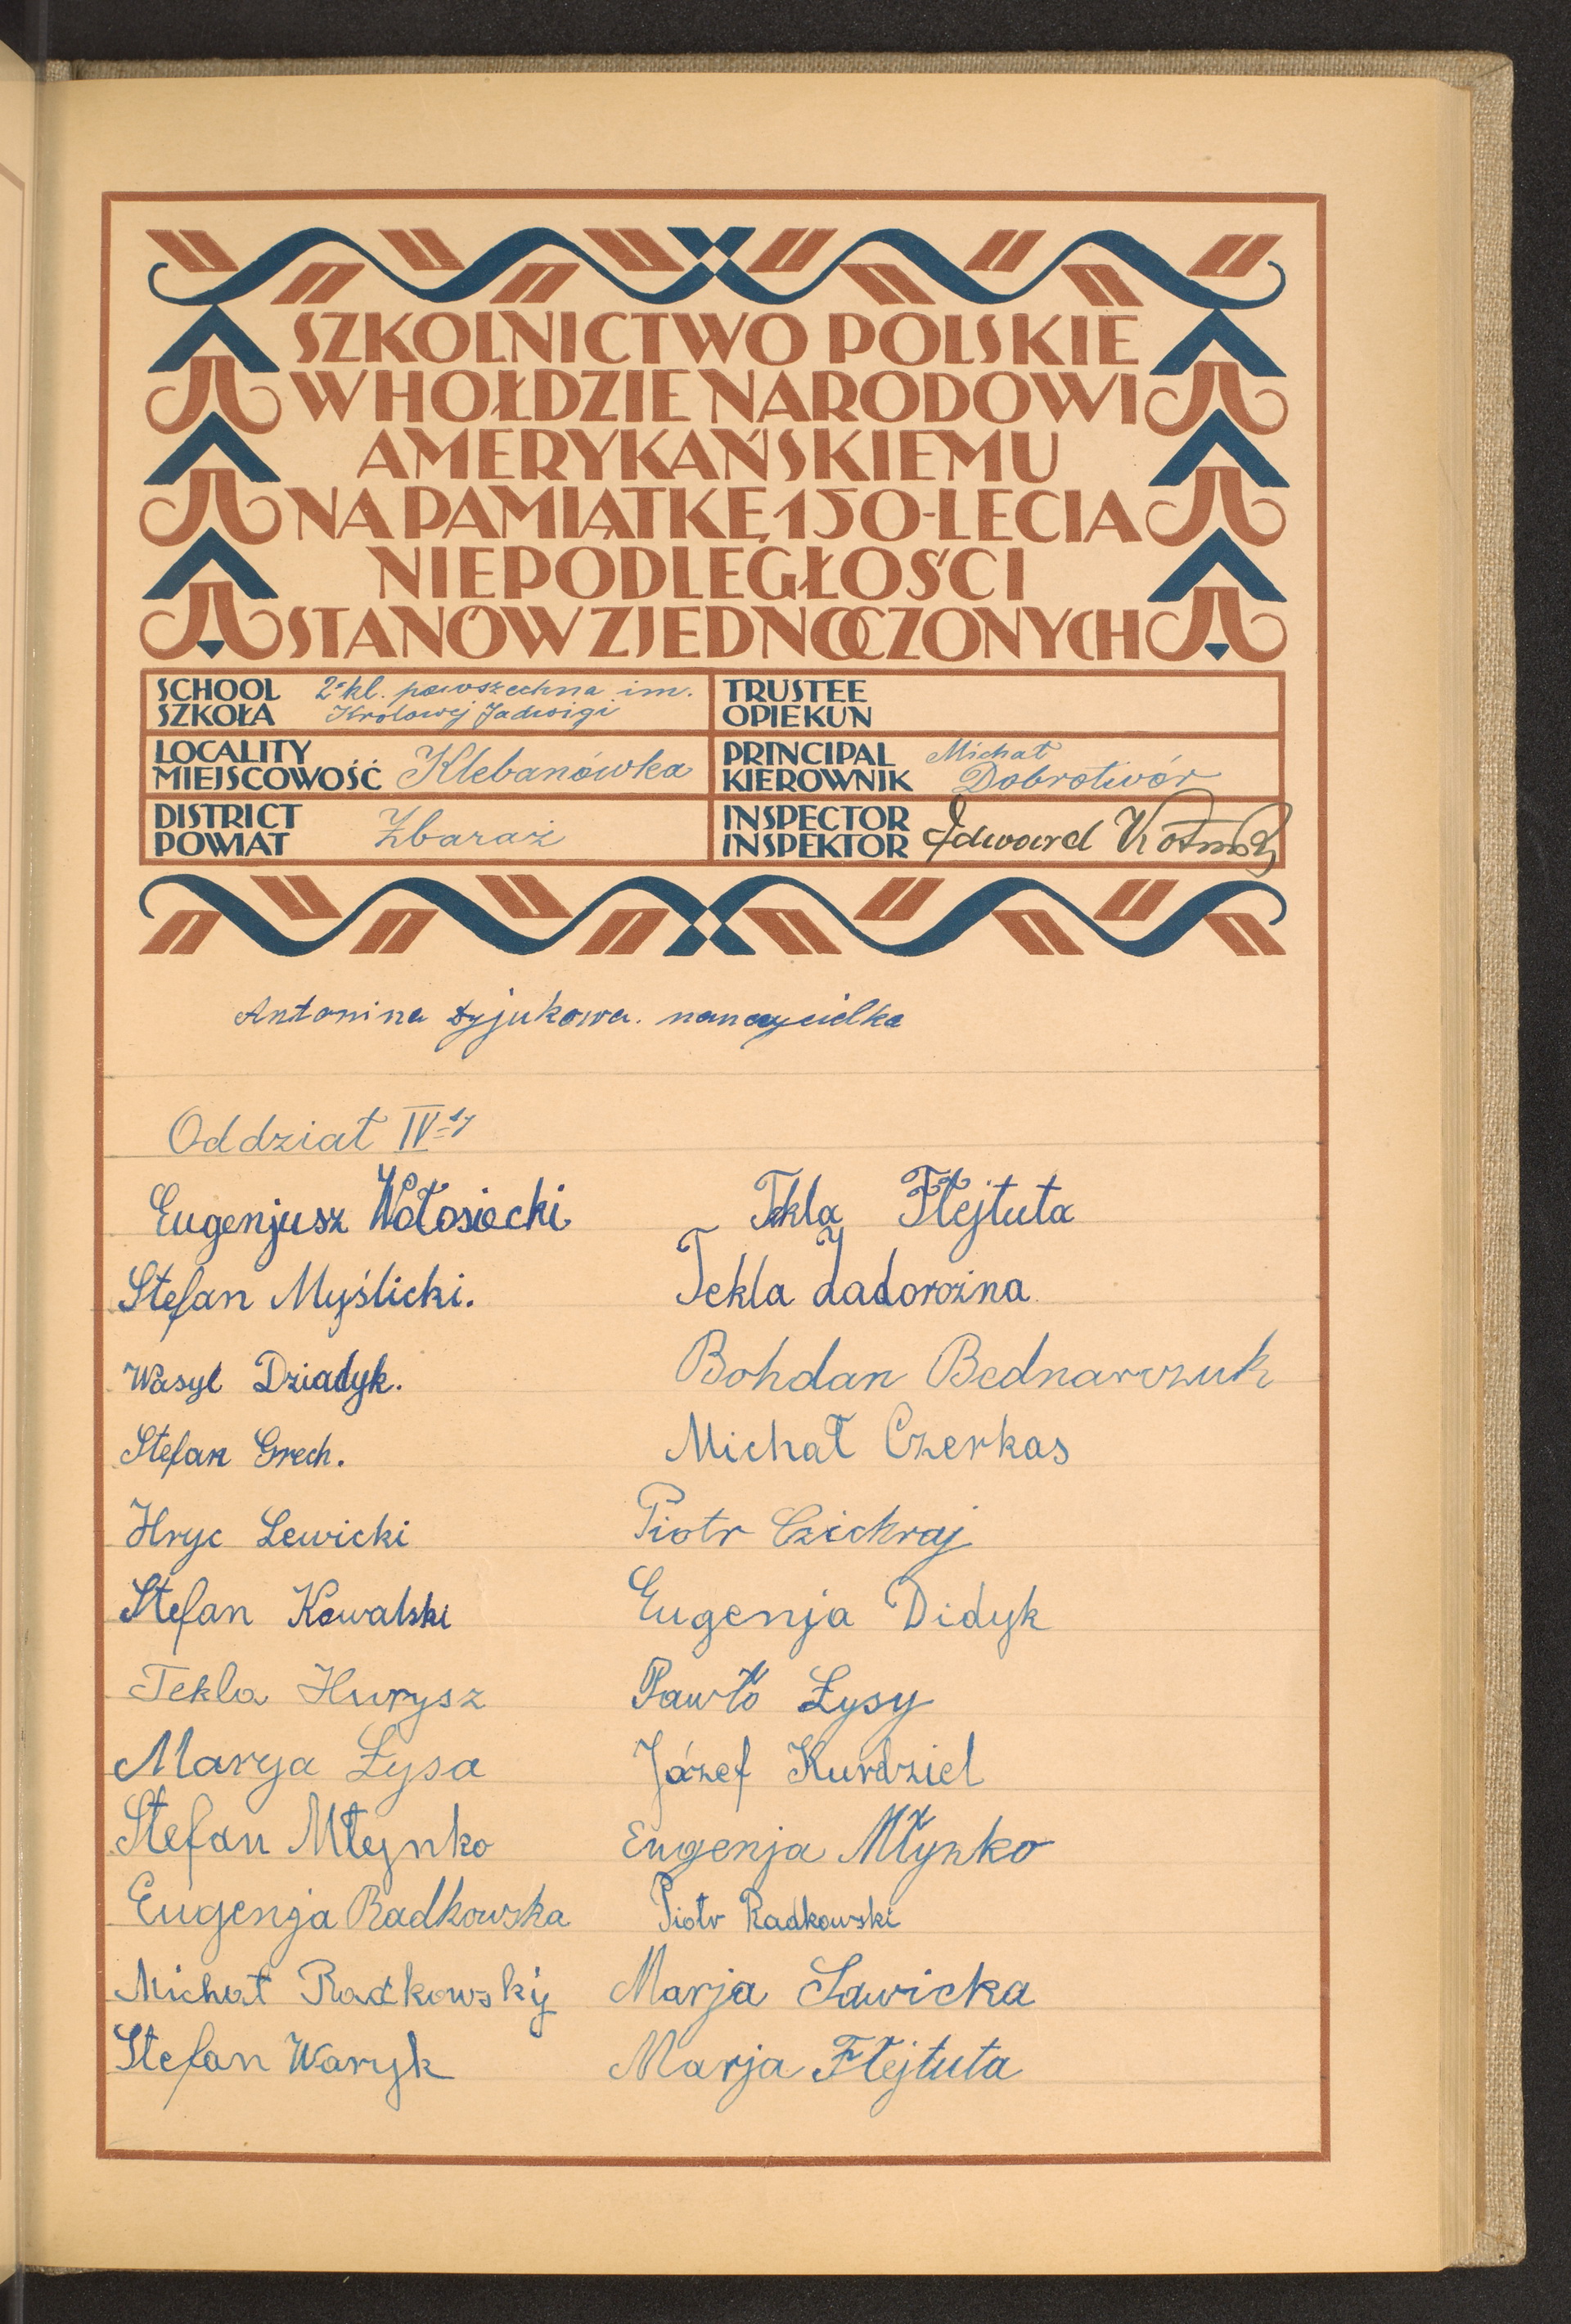 SZKOLNICTWO POLSKIE
W HOŁDZIE NARODOWI
AMERYKAŃSKIEMU
NA PAMIĄTKĘ 150-LECIA
NIEPODLEGŁOŚCI
STANÓW ZJEDNOCZONYCH
SCHOOL SZKOŁA 2-kl. powszechna im. Królowej Jadwigi
TRUSTEE OPIEKUN
LOCALITY MIEJSCOWOŚĆ Klebanówka
PRINCIPAL KIEROWNIK Michał Dobrotwór
DISTRICT POWIAT Zbaraż
INSPECTOR INSPEKTOR Edward
Antonina Dyjukowa. nauczycielka
Oddział IV-ty
Eugenjusz Wołosiecki
Tekla Flejtuta
Stefan Myślicki.
Tekla Zadorożna
Wasyl Dziadyk.
Bohdan Bednarczuk
Stefan Grech.
Michał Czerkas
Hryc Lewicki
Piotr
Stefan Kowalski
Eugenja Didyk
Tekla Hurysz
Pawło Łysy
Marya Łysa
Józef Kurdziel
Stefan Młynko
Eugenja Młynko
Eugenja Radkowska
Piotr Radkowski
Michał Radkowskij
Marja Sawicka
Stefan Waryk
Marja Flejtuta